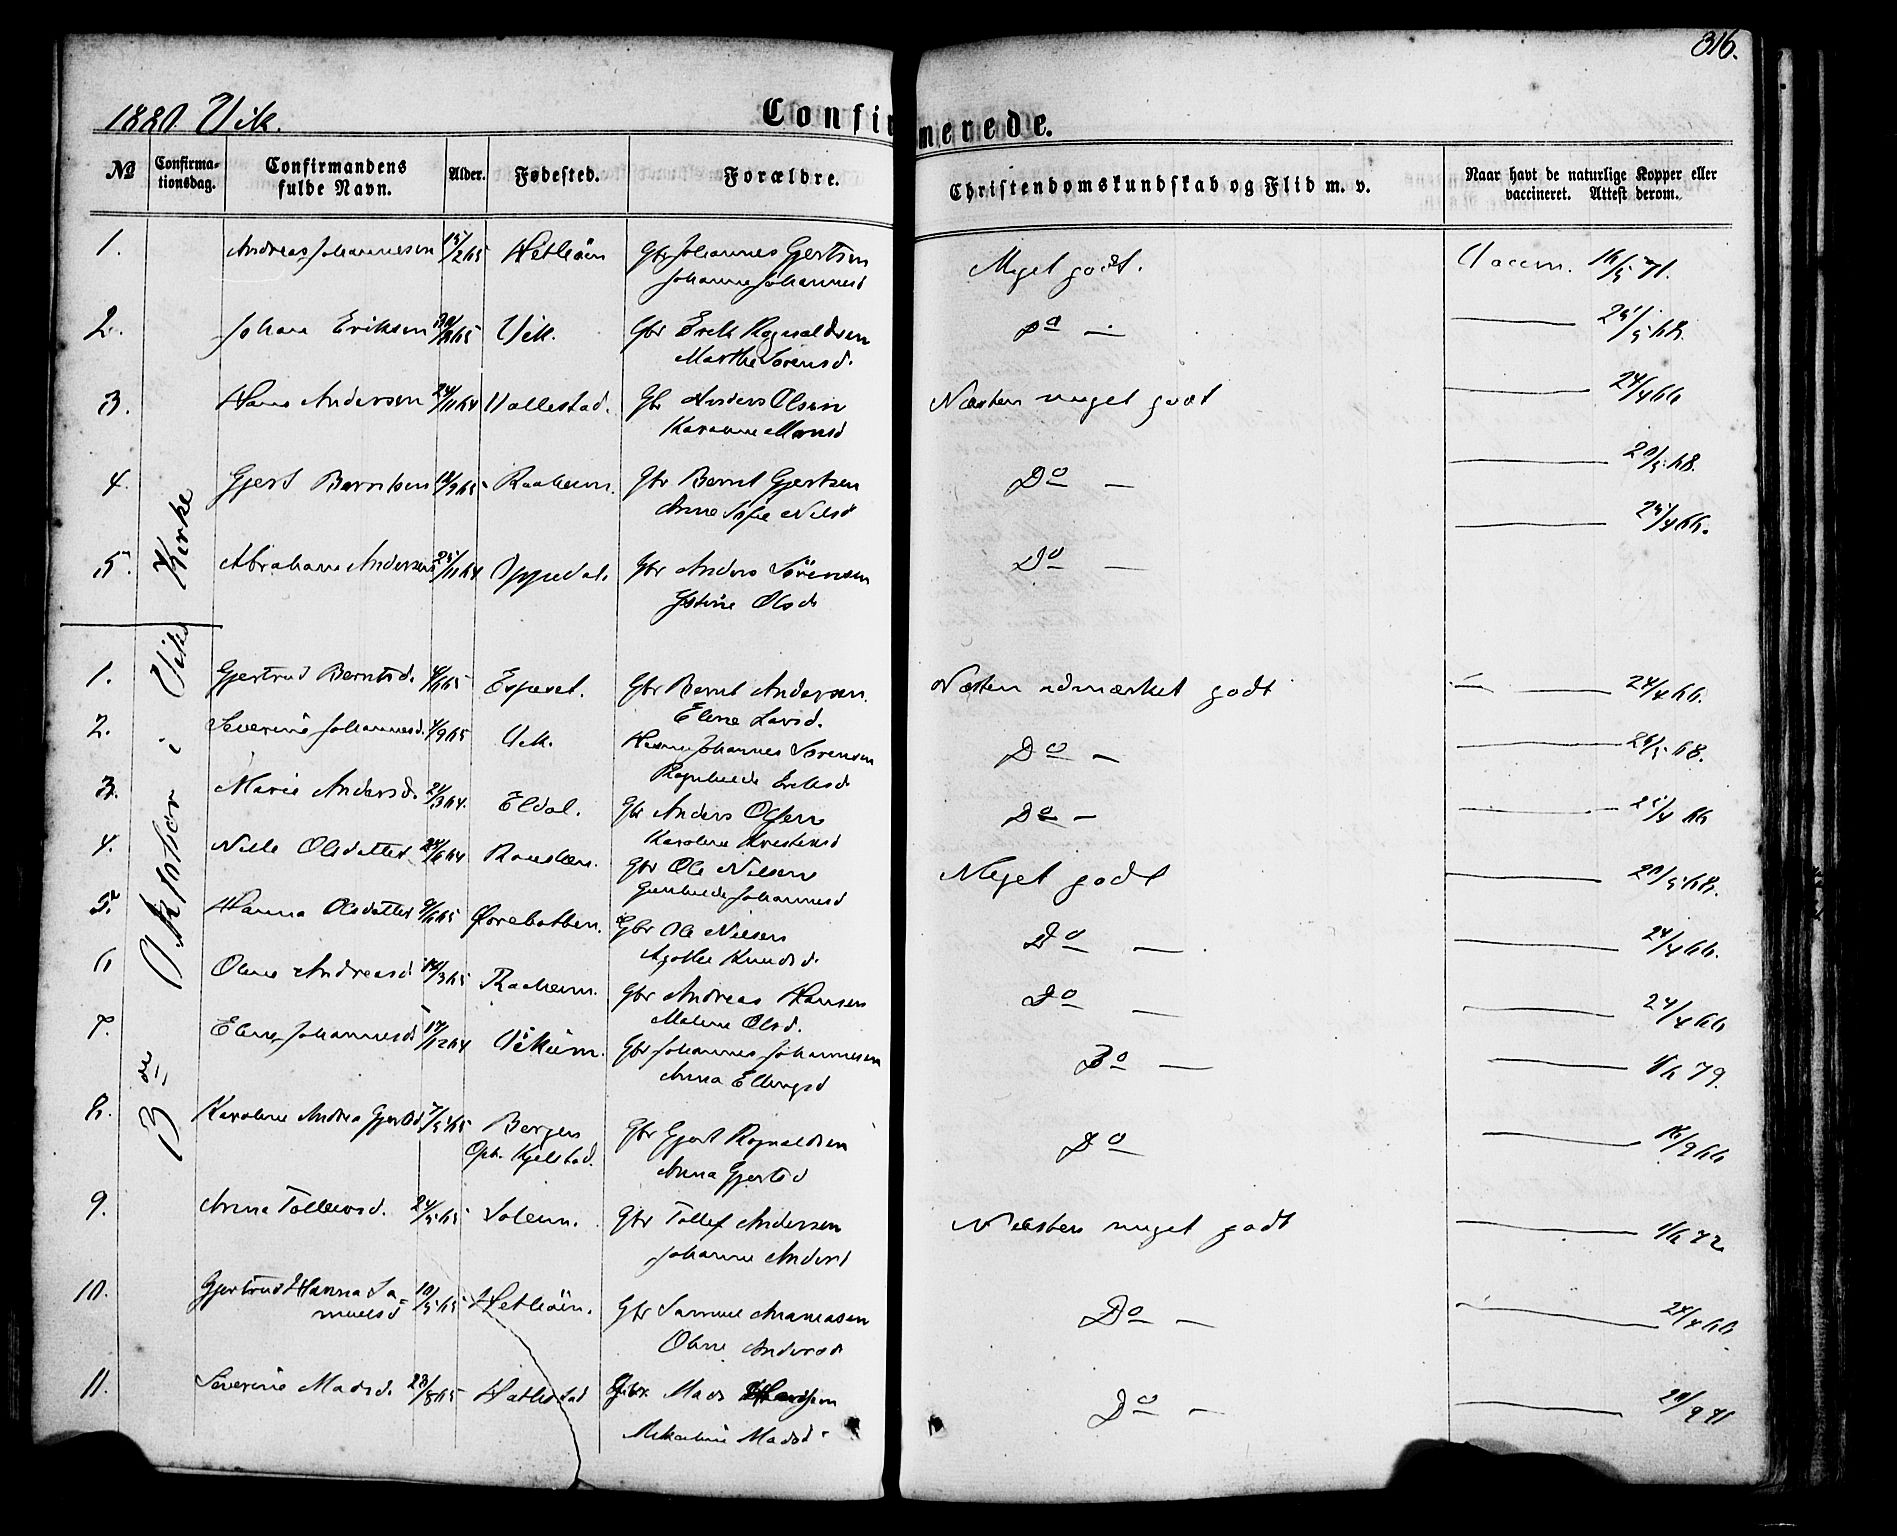 316.
1880. Vik.
Confirmerede.
No Confirmationsdag. Confirmandens fulde Navn. Alder. Fødested. Forældre. Christendomskundskab og Flid m. v. Naar havt de naturlige Kopper eller vaccineret. Attest derom.
3die Oktober i Viks Kirke
1. Andreas Johannesen 15/2 65 Hetleøen Gbr Johannes Gjertsen Meget godt. Vaccin. 16/5 71.
Johanne Johannesd
2. Johan Eriksen Vik. Gbr Erik Rognaldsen Do — 25/5 68.
Marthe Sørensd.
3. Hans Andersen 24/11 64 Vallestad. Gbr Anders Olsen Næsten meget godt 24/4 66
Karanne Monsd
4. Gjert Berntsen 18/9 65 Raaheim. Gbr Bernt Gjertsen Do — 20/5 68.
Anne Sofie Nilsd
5. Abraham Andersen 25/11 64 Oppedal. Gbr Anders Sørensen Do — 25/4 66.
Olsd
1. Gjertrud Berntsd. 4/6 65 Espeset. Gbr Bernt Andersen. Næsten udmærket godt — 24/4 66.
Elene Larsd.
2. Severine Johannesd. 4/9 65 Vik. Johannes Sørensen Do — 26/5 68.
Ragnhilde Eriksd
3. Marie Andersd. 24/3 64. Eldal. Gbr Anders Do — 25/4 66
Karoline Kristensd
4. Nille Olsdatter 24/6 64 Gbr Ole Nilsen Meget godt 20/5 68.
Gunhilde Johannesd
5. Hanna Olsdatter 9/6 65 Ørebotten. Gbr Ole Nilsen Do — 24/4 66.
Agothe Knudsd.
6 Oline Andreasd 14/3 65 Raaheim. Gbr Andreas Hansen Do — 24/4 66
Malene Olsd.
7. Elene Johannesd 17/12 64 Vikum. Gbr Johannes Johannesen Do — 1/6 79.
Anna Ellingsd
8. Karoline Andrea Gjertsd 7/5 65 Bergen Gbr Gjert Rognaldsen Do 16/9 66
Oph. Kjelstad. Anna Gjertsd
9. Anna Tollevsd. 24/5 65 Soleim. Gbr Tollef Andersen Næsten meget godt 1/6 72
Johanne Andersd
10. Gjertrud Hanna Samuelsd 10/5 65 Hetleøen. Gbr Samuel Ananiasen Do — 24/4 66
Oline Andersd
11. Severine Madsd. 28/8 65 Hatlestad Gbr. Mads Do — 20/9 71
Mikaline Madsd